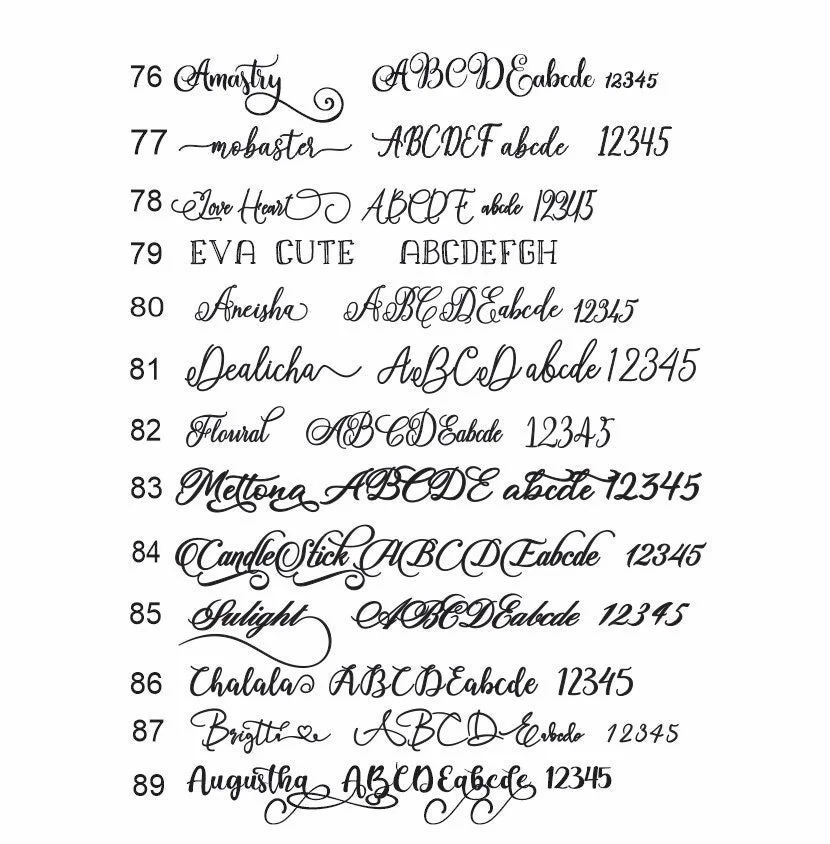 76 Amastry ABCDEabcde 12345
77 mobaster ABCDEF abcde 12345
78 Love Heart ABCDE abcde 12345
79 EVA CUTE ABCDEFGH
80 Aneisha ABCDEabcde 12345
81 Dealicha ABCD abcde 12345
82 Floural ABCDEabcde 12345
83 Mettona ABCDE abcde 12345
84 CandleStick ABCDEabcde 12345
85 Sulight ABCDEabcde 12345
86 Chalala ABCDEabcde 12345
87 Brigtti ABCDEabcde 12345
89 Augustha ABCDEabcde 12345